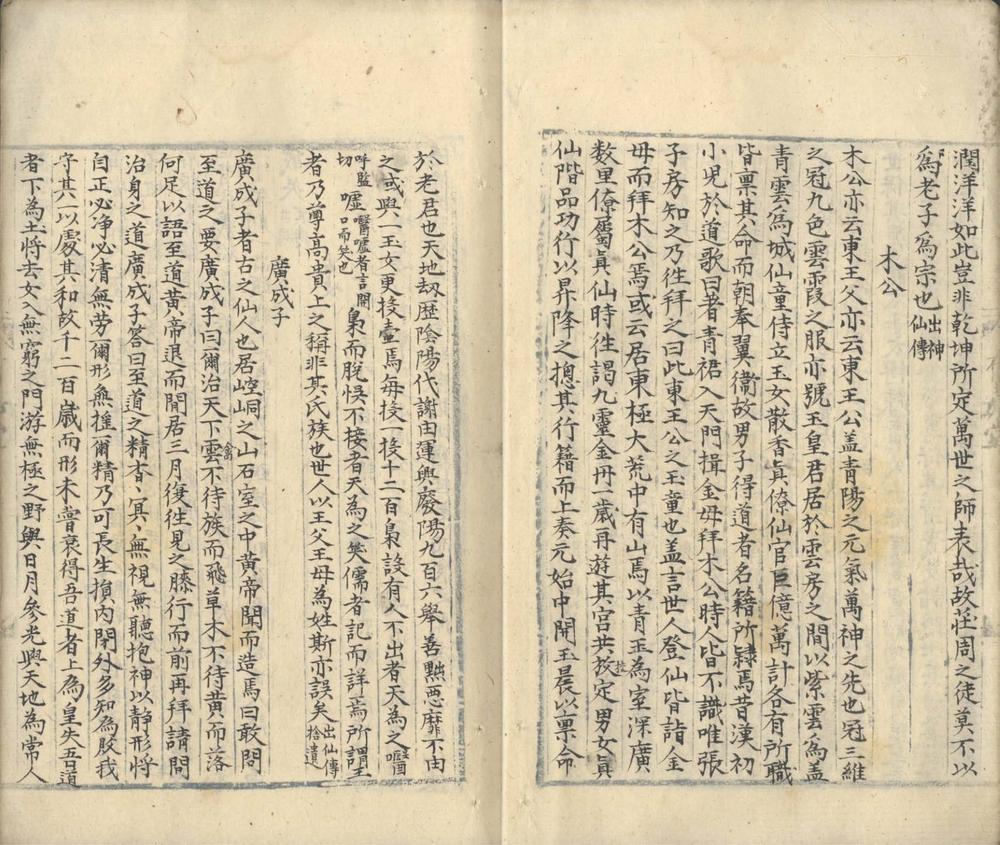 潤洋洋如此豈非乾坤所定萬世之師表哉故莊周之徒莫不以
爲老子爲宗也出神仙傳
木公
木公亦云東王父亦云東王公盖青陽之元氣萬神之先也冠三維
之冠九色雲霞之服亦號玉皇君居於雲房之間以紫雲爲盖
青雲爲城仙童侍立玉女散香眞僚仙官巨億萬計各有所職
皆禀其命而朝奉翼衛故男子得道者名籍所隷焉昔漢初
小児於道歌曰者青裙入天門揖金母拜木公時人皆不識唯張
子房知之乃徃拜之曰此東王公之玉童也盖言世人登仙皆詣金
母而拜木公焉或云居東極大荒中有山焉以青玉爲室深廣
数里僚屬眞仙時徃謁九靈金丹一歲再遊其宮共挍定男女眞
仙階品功行以昇降之摠其行籍而上奏元始中開玉晨以禀命
於老君也天地刼歴陰陽代謝由運興廢陽九百六舉善黜惡靡不由
之或與一玉女更投壷焉每投一投十二百梟設有人不出者天爲之醫
呼監切嘘醫嘘者言開口而笑也梟而脫悞不接者天爲之笑儒者記而詳焉所謂王
者乃尊高貴上之稱非其氏族也世人以王父王母為姓斯亦誤矣出仙傳拾遺
廣成子
廣成子者古之仙人也居崆峒之山石室之中黄帝聞而造焉曰敢問
至道之要廣成子曰爾治天下雲禽不待族而飛草木不待黄而落
何足以語至道黄帝退而閒居三月復徃見之膝行而前再拜請問
治身之道廣成子答曰至道之精杳杳冥冥無視無聽抱神以静形將
自正必净必清無劳爾形無揺爾精乃可長生損内閉外多知為敗我
守其一以處其和故千二百歲而形未嘗衰得吾道者上為皇失吾道
者下為土將去女入無窮之門游無極之野與日月參光與天地為常人